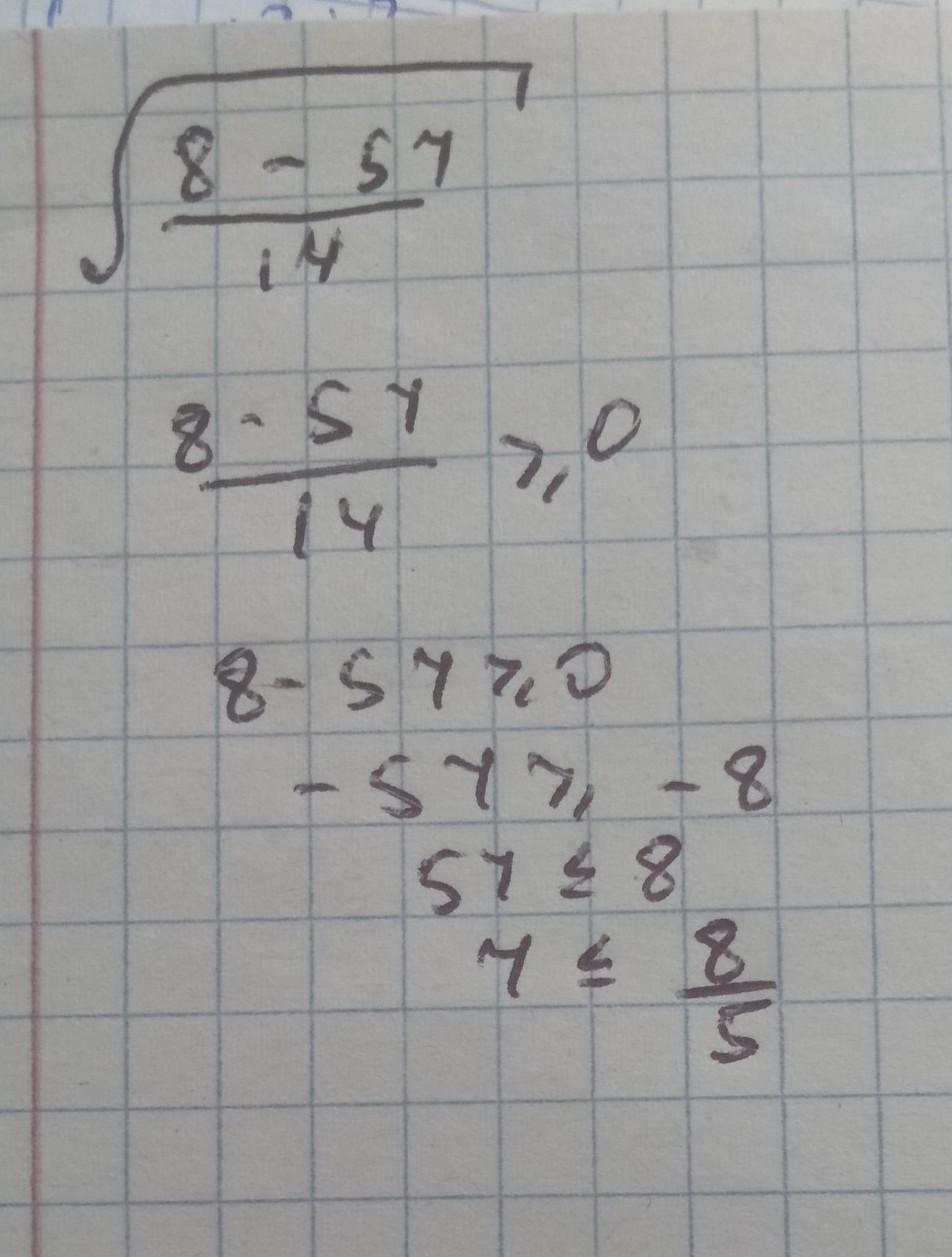 √((8 - 5y)/14)
(8 - 5y)/14 ⩾ 0
8 - 5y ⩾ 0
- 5y ⩾ - 8
5y ≤ 8
y ≤ 8/5